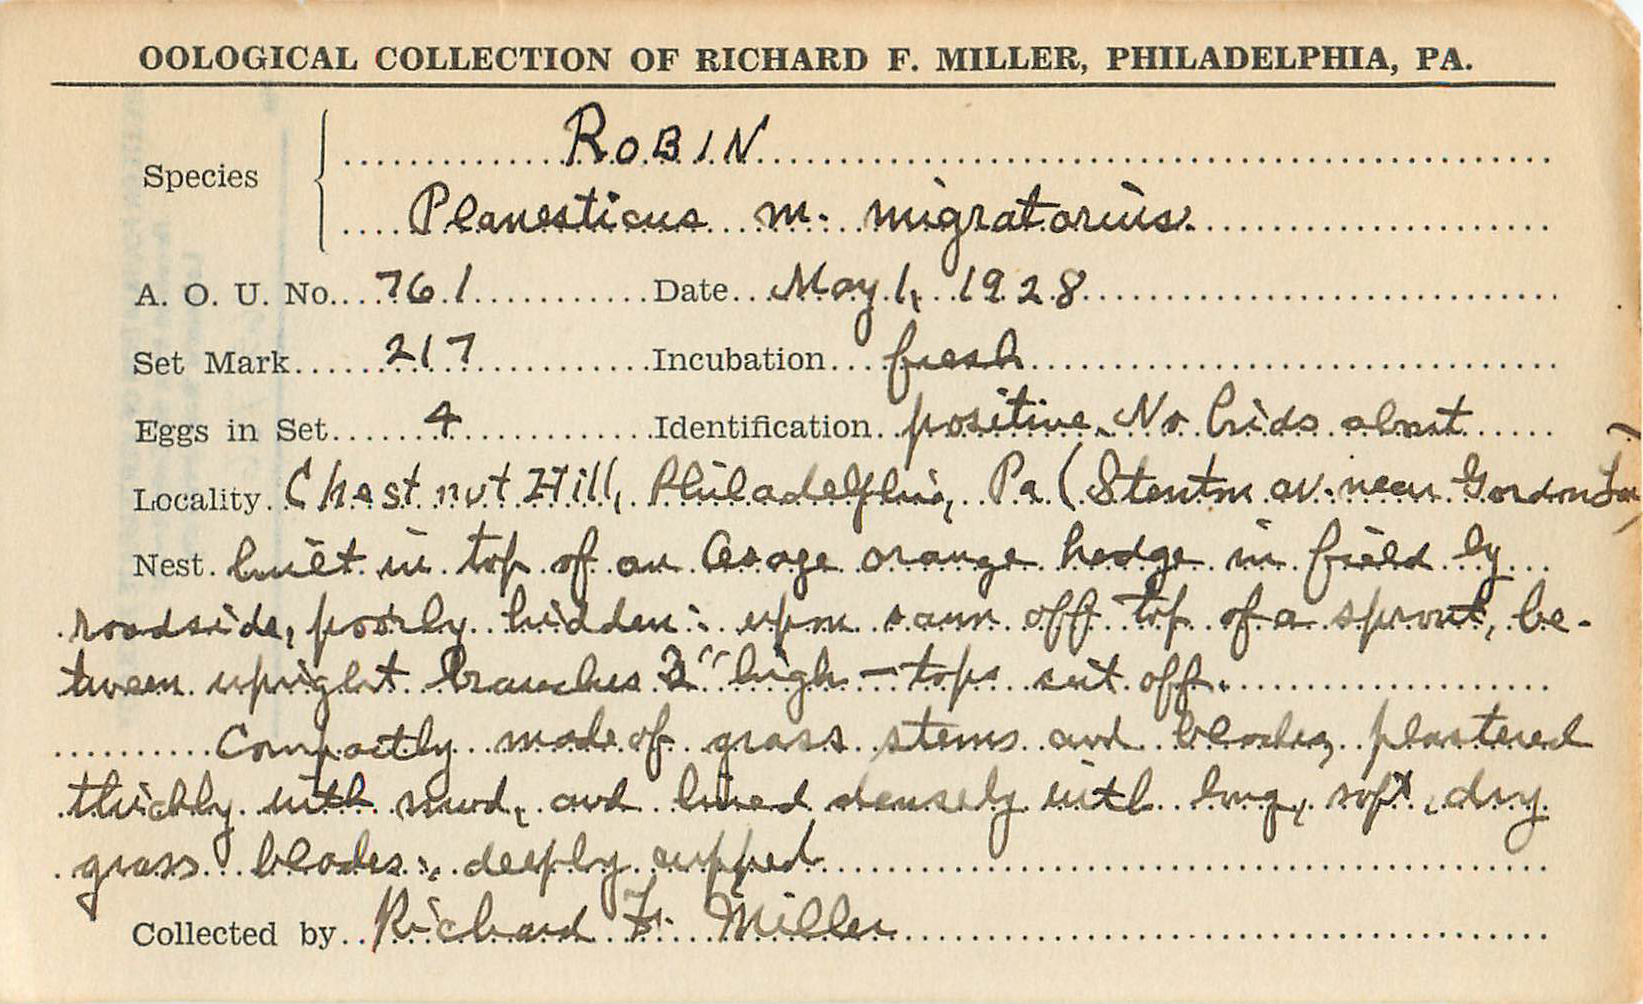 OOLOGICAL COLLECTION OF RICHARD F. MILLER, PHILADELPHIA, PA.
Species ROBIN
Planesticus m. migratorius.
A. O. U. No. 761 Date May 1, 1928
Set Mark 217 Incubation fresh
Eggs in Set 4 Identification positive. No birds about
Locality Chestnut Hill, Philadelphia, Pa (Stenton av. near Gordon
Nest built in top of an Osage orange hedge in field by
roadside, poorly hidden: upon off top of a sprout, be-
tween upright branches 3" high - tops cut off.
Compactly made of grass stems and blades, plastered
thickly with mud, and lined densely with long, soft, dry
grass blades; deeply cupped
Collected by Richard F. Miller